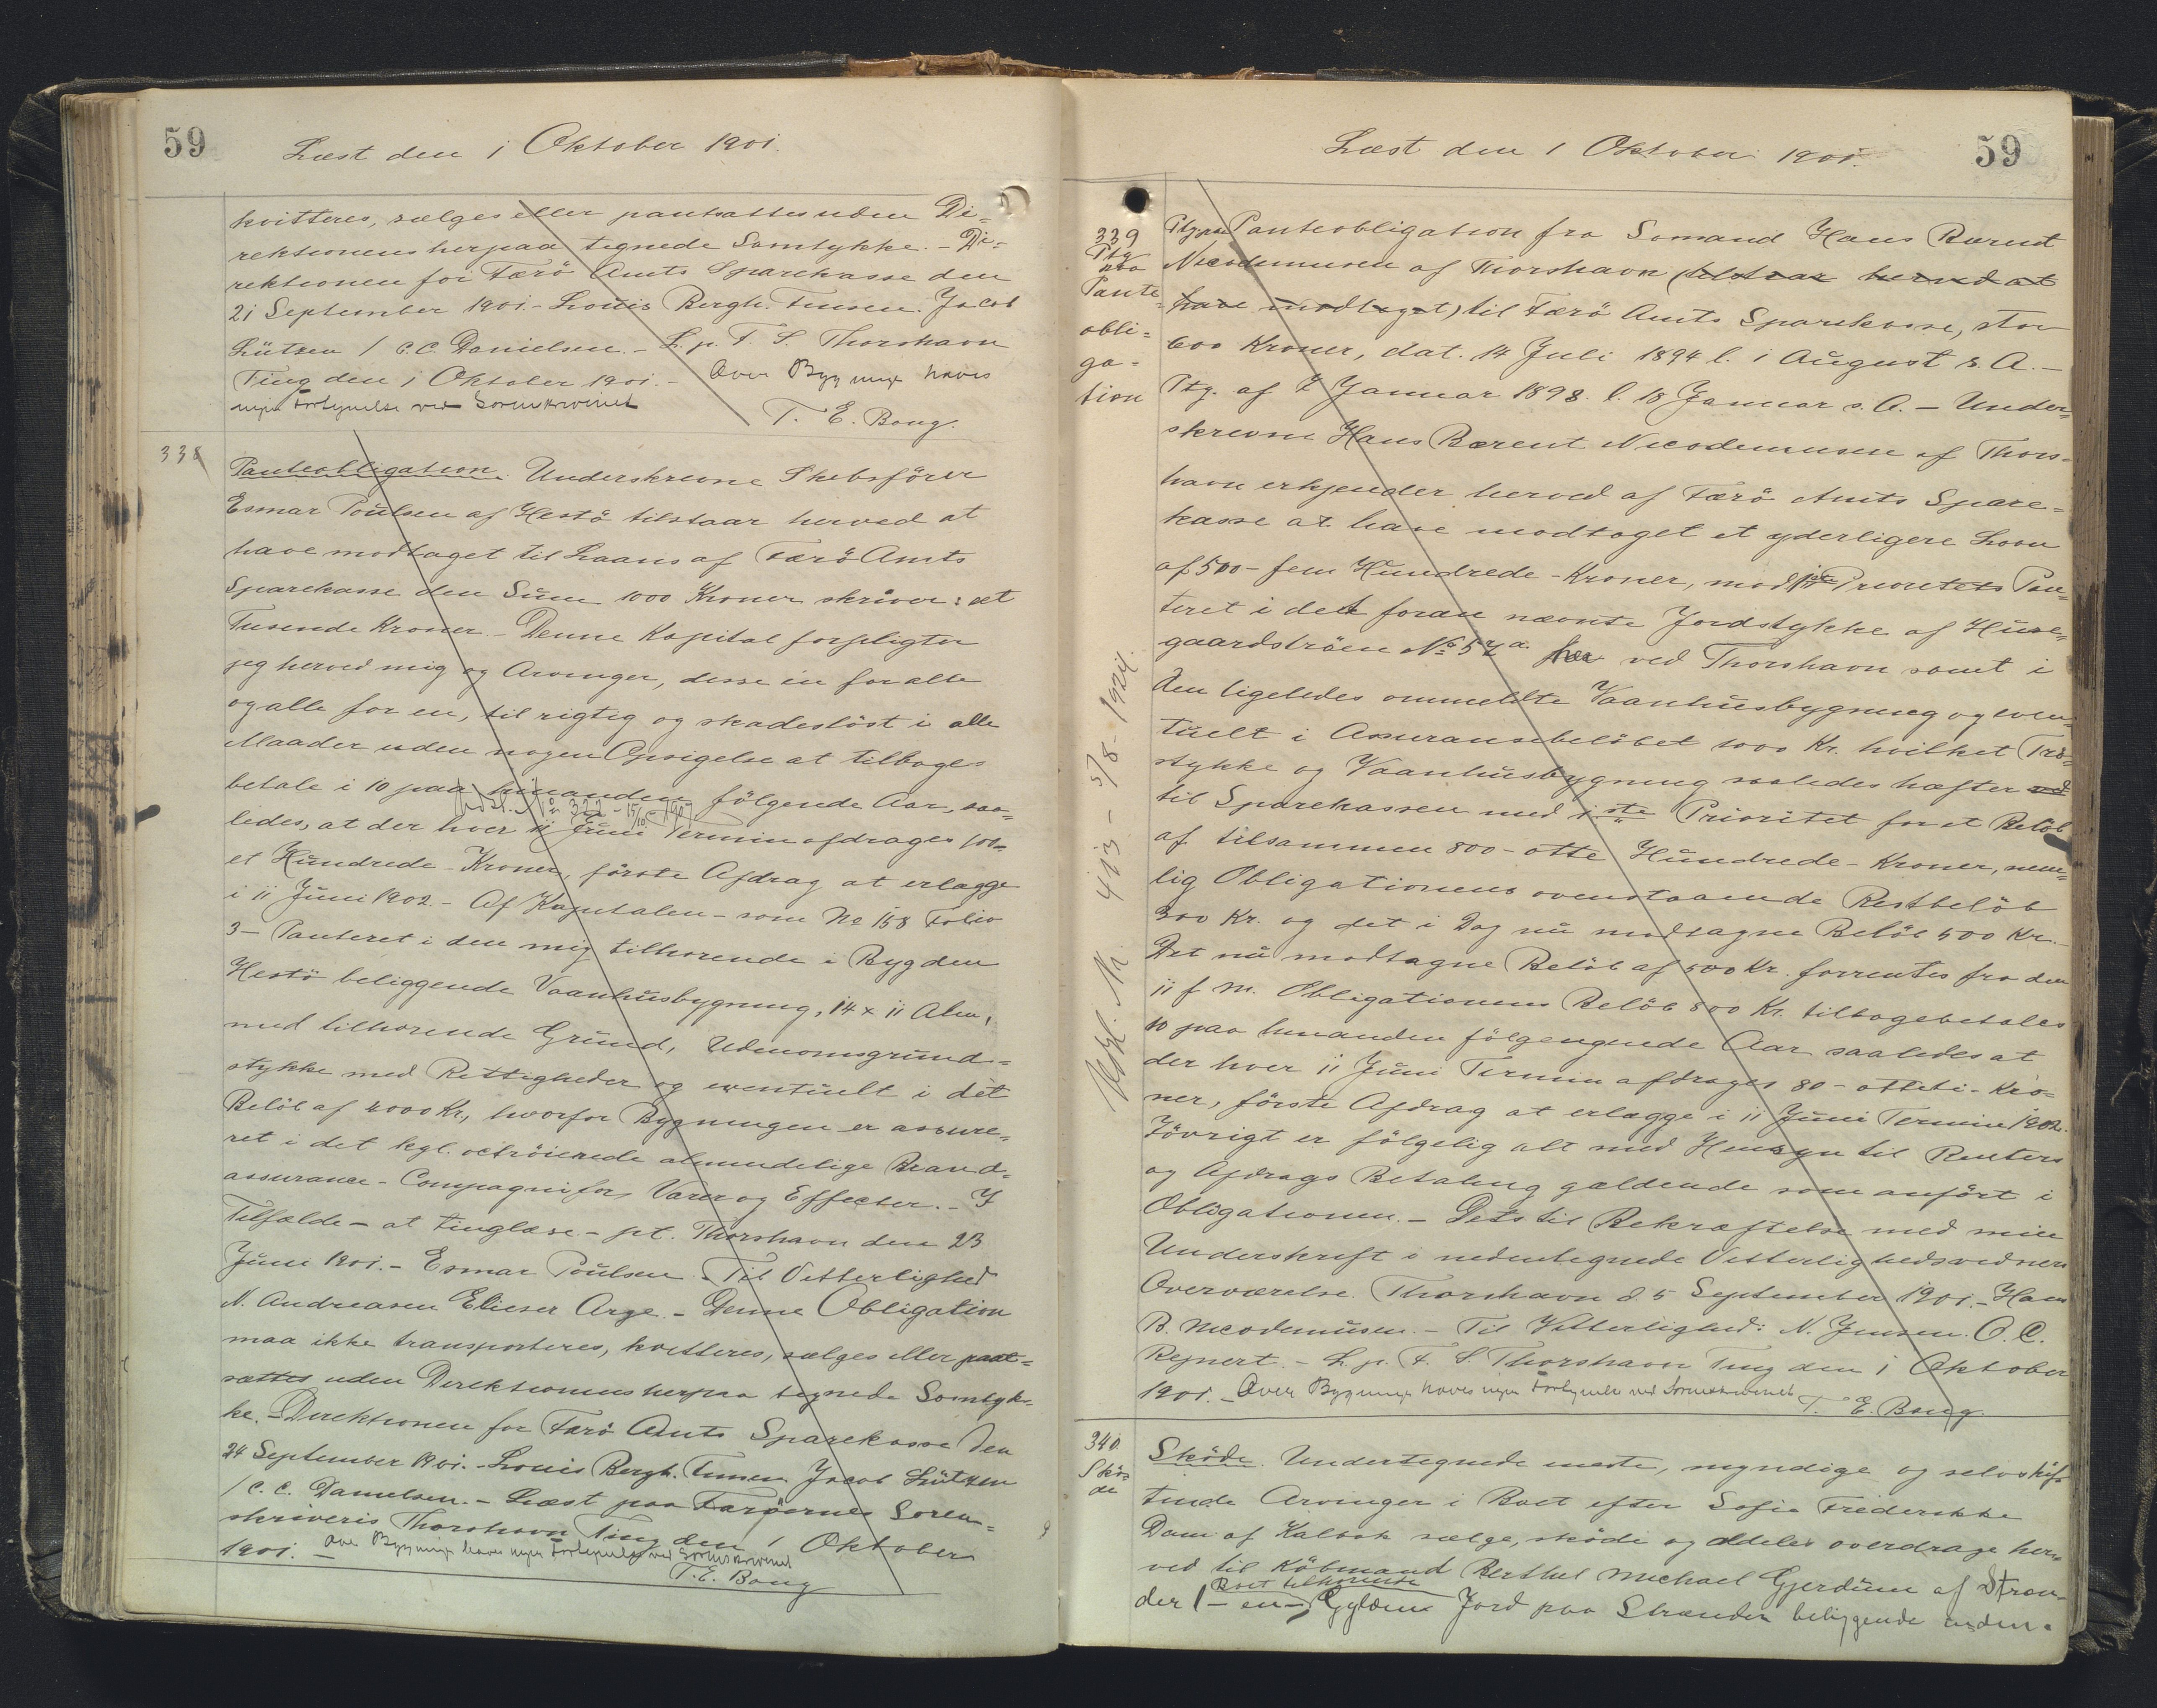 59
Læst den 1 Oktober 1901.
kvitteres, sælges eller pantsættes uden Di=
rektionens herpaa tegnede Samtykke. - Di=
rektionen for Færö Amts Sparekasse den
21 September 1901. - Louis Bergh. Finsen. Jacob
Lützen / C.C. Danielsen. - L. p. F. S. Thorshavn
Ting den 1 Oktober 1901. - Over Bygninger haves
ingen Forsynelse ved Sorenskriveriet
T. E. Bang.
338
Panteobligation. Underskrevne Skibsförer
Esmar Poulsen af Hestö tilstaar herved at
have modtaget til Laans af Færö Amts
Sparekasse den Sum 1000 Kroner skriver: et
Tusende Kroner. - Denne Kapital forpligter
jeg herved mig og Arvinger, disse en for alle
og alle for en, til rigtig og skadeslöst i alle
Maader uden nogen Opsigelse at tilbage=
betale i 10 paa hinanden fölgende Aar, saa=
No 322 - 15/10 - 1907
ledes, at der hver 11 Juni Termin afdrages 100
et Hundrede - Kroner, förste Afdrag at erlægge
i 11 Juni 1902. - Af Kapitalen - som No 158 Folio
3 - Panteret i den mig tilhörende i Bygden
Hestö beliggende Vaanhusbygning, 14 x 11 Alen,
med tilhörende Grund, Udenomsgrund=
stykke med Rettigheder og eventuelt i det
Belöb af 4000 Kr., hvorfor Bygningen er assure=
ret i det kgl. octröierede almindelige Brand=
assurance - Compagni for Varer og Effecter. - I
Tilfælde - at tinglæse - pt. Thorshavn den 23
Juni 1901. - Esmar Poulsen. - Til Vitterlighed
N. Andreasen Elieser Arge. - Denne Obligation
maa ikke transporteres, kvitteres, sælges eller pant=
sættes uden Direktionens herpaa tegnede Samtyk=
ke. - Direktionen for Færö Amts Sparekasse den
24 September 1901. - Louis Bergh. Finsen. Jacob Lützen
/ C. C. Danielsen. - Læst paa Færöernes Soren=
skriveris Thorshavn Ting den 1 Oktober
1901. - Over Bygninger haves ingen Forsynelse ved Sorenskriveriet
T. E. Bang
Læst den 1 Oktober 1901.
59
339
Ptg.
paa
Pante=
obli=
ga=
tion
Ptg. paa Panteobligation fra Sömand Hans Barent
Nicodemusen af Thorshavn (tilstaar herved at
have modtaget) til Færö Amts Sparekasse, stor
600 Kroner, dat. 14 Juli 1894 l. 1 August s. A. -
Ptg. af 7 Januar 1898. l. 18 Januar s. A. - Under=
skrevne Hans Barent Nicodemusen af Thors=
havn erkjender herved af Færö Amts Spare=
kasse at have modtaget et yderligere Laan
af 500 - fem Hundrede - Kroner, mod 1ste Prioritets Pan=
teret i det foran nævnte Jordstykke af Huse=
gaardströen No 57 a. her ved Thorshavn samt i
den ligeledes ommeldte Vaanhusbygning og even=
tuelt i Assurancebelöbet 1000 Kr. hvilket Trö=
stykke og Vaanhusbygning saaledes hæfter ved
til Sparekassen med 1ste Prioritet for et Belöb
af tilsammen 800 - otte Hundrede - Kroner, nem=
lig Obligationens ovenstaaende Restbelöb
300 Kr. og det i Dag nu modtagne Belöb 500 Kr. -
Det nu modtagne Belöb af 500 Kr. forrentes fra den
11 f. M. Obligationens Belöb 800 Kr. tilbagebetales
10 paa hinanden fölgengende Aar saaledes at
der hver 11 Juni Termin afdrages 80 - otteti - Kro=
ner, förste Afdrag at erlægge i 11 Juni Termin 1902.
Iövrigt er fölgelig alt med Hensyn til Renters
og Afdrags Betaling gældende som anfört i
Obligationen. - Dets til Bekræftelse med min
Underskrift i nedentegnede Vitterlighedsvidners
Overværelse. Thorshavn d. 5 September 1901. - Hans
B. Nicodemusen. - Til Vitterlighed: N. Jensen. O. C.
Rejnert. - L. p. F. S. Thorshavn Ting den 1 Oktober
1901. - Over Bygninger haves ingen Forsynelse ved Sorenskriveriet
T. E. Bang.
Udsl. No 413 - 5/8 - 1924.
340.
Skö=
de
Sköde. Undertegnede eneste, myndige og selvskif=
tende Arvinger i Boet efter Sofie Frederikke
Dam af Kalbak sælge, sköde og aldeles overdrage her=
ved til Köbmand Berthel Michael Gjerdum af Stran=
Boet tilhörende
der 1 - en - Gylden Jord paa Strænder beliggende unden=